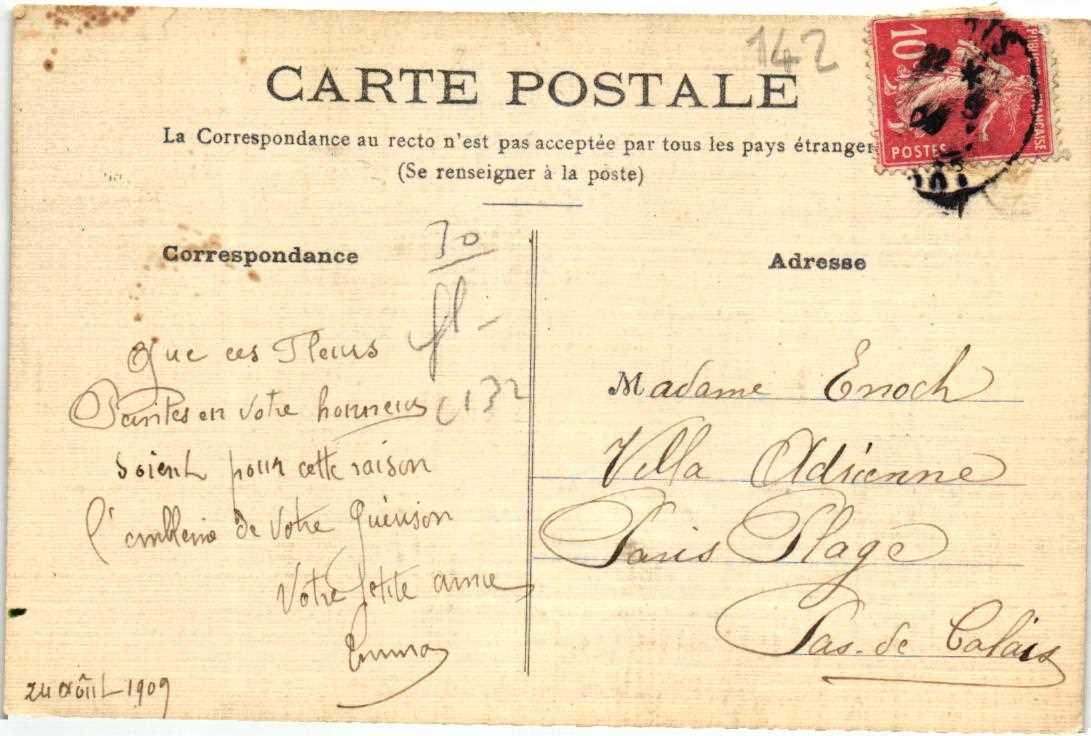 142
CARTE POSTALE
La Correspondance au recto n'est pas acceptée par tous les pays étranger
(Se renseigner à la poste)
10
POSTES
Correspondance
Adresse
30
Que ces Fleurs
Peintes en votre honneur
soient pour cette raison
l'emblème de votre Guérison
Votre petite amie
Emma
24 Août 1909
Madame Enoch
Villa Adrienne
Paris Plage
Pas-de Calais